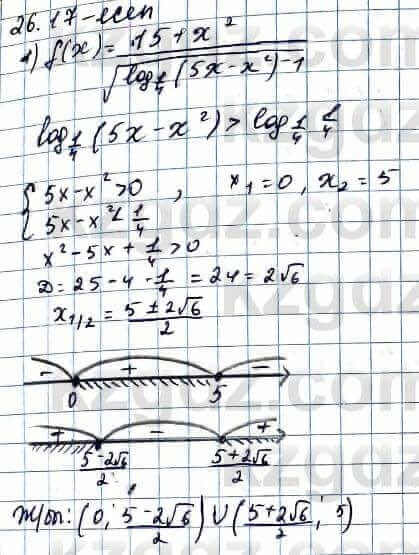 26.17-есеп
1) f(x) = (15 + x²) / √(log_{1/4} (5x - x²) - 1)
log_{1/4} (5x - x²) > log_{1/4} 1/4
{ 5x - x² > 0 , x₁ = 0 , x₂ = 5
{ 5x - x² < 1/4
x² - 5x + 1/4 > 0
D = 25 - 4 · 1/4 = 24 = 2√6
x_{1/2} = (5 ± 2√6) / 2
- + -
0 5
+ - +
(5 - 2√6) / 2 (5 + 2√6) / 2
Ж/бы: (0; (5 - 2√6) / 2) ∪ ((5 + 2√6) / 2; 5)